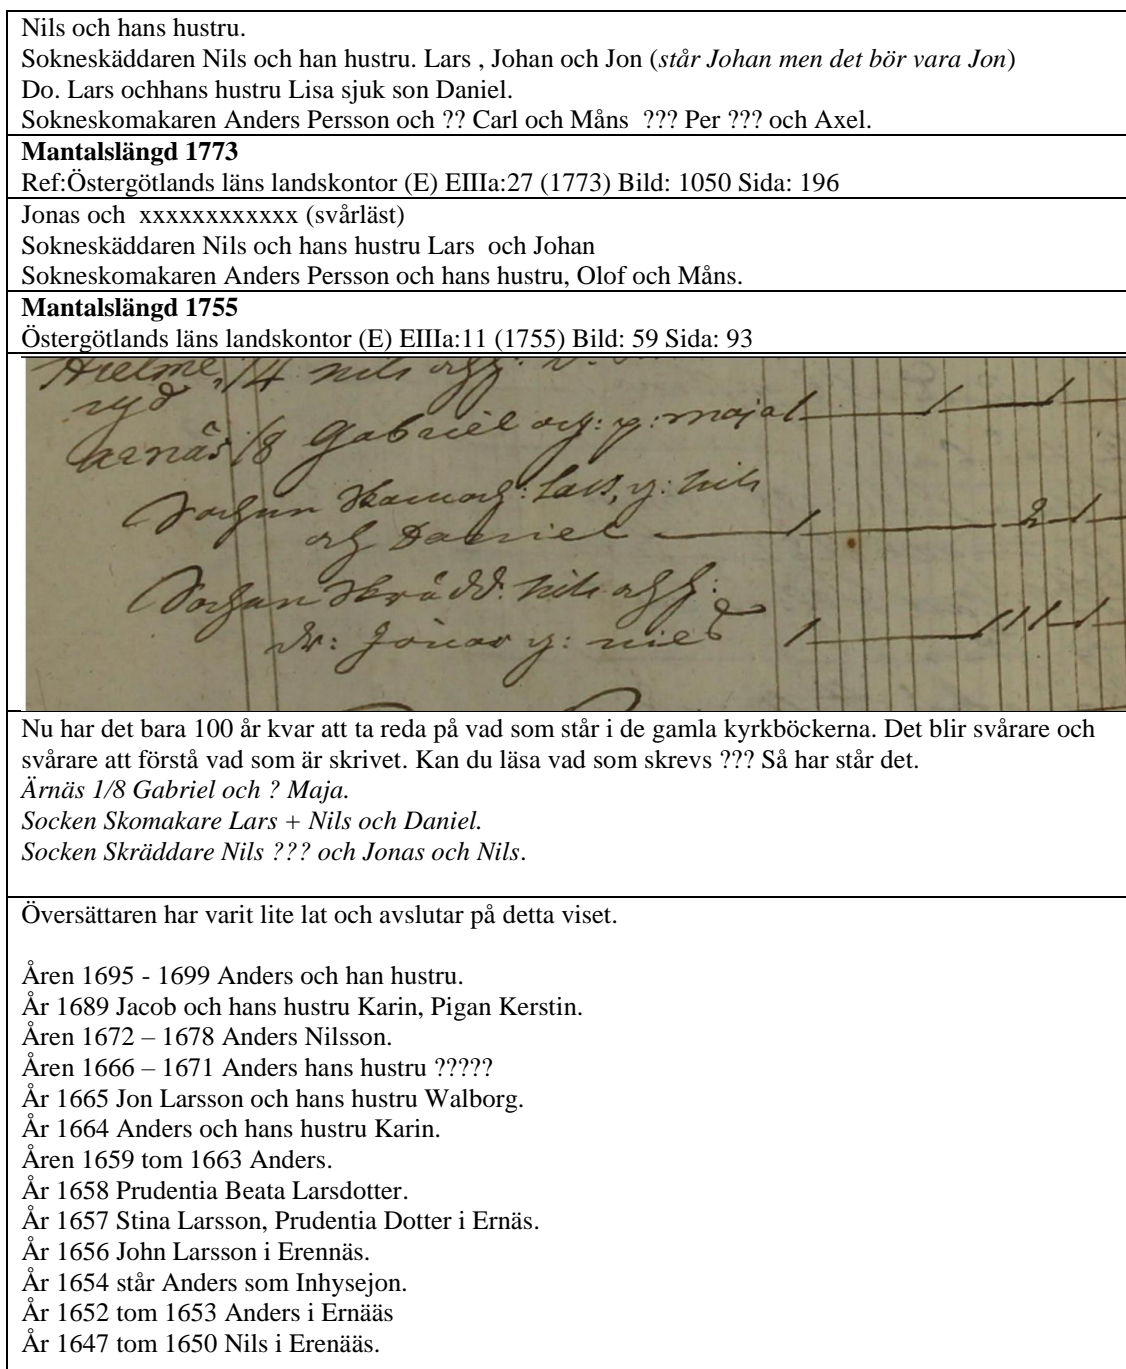 Nils och hans hustru.
Sokneskäddaren Nils och han hustru. Lars , Johan och Jon (står Johan men det bör vara Jon)
Do. Lars ochhans hustru Lisa sjuk son Daniel.
Sokneskomakaren Anders Persson och ?? Carl och Måns ??? Per ??? och Axel.
Mantalslängd 1773
Ref:Östergötlands läns landskontor (E) EIIIa:27 (1773) Bild: 1050 Sida: 196
Jonas och xxxxxxxxxxxx (svårläst)
Sokneskäddaren Nils och hans hustru Lars och Johan
Sokneskomakaren Anders Persson och hans hustru, Olof och Måns.
Mantalslängd 1755
Östergötlands läns landskontor (E) EIIIa:11 (1755) Bild: 59 Sida: 93
1/4 nils
ryd
1/8 Gabriel och: p: maja
Sochn Lars, p: nils
och Daniel
Sochn Skrädd: nils och h:
dr: Jonas p:
Nu har det bara 100 år kvar att ta reda på vad som står i de gamla kyrkböckerna. Det blir svårare och
svårare att förstå vad som är skrivet. Kan du läsa vad som skrevs ??? Så har står det.
Ärnäs 1/8 Gabriel och ? Maja.
Socken Skomakare Lars + Nils och Daniel.
Socken Skräddare Nils ??? och Jonas och Nils.
Översättaren har varit lite lat och avslutar på detta viset.
Åren 1695 - 1699 Anders och han hustru.
År 1689 Jacob och hans hustru Karin, Pigan Kerstin.
Åren 1672 – 1678 Anders Nilsson.
Åren 1666 – 1671 Anders hans hustru ?????
År 1665 Jon Larsson och hans hustru Walborg.
År 1664 Anders och hans hustru Karin.
Åren 1659 tom 1663 Anders.
År 1658 Prudentia Beata Larsdotter.
År 1657 Stina Larsson, Prudentia Dotter i Ernäs.
År 1656 John Larsson i Erennäs.
År 1654 står Anders som Inhysejon.
År 1652 tom 1653 Anders i Ernääs
År 1647 tom 1650 Nils i Erenääs.